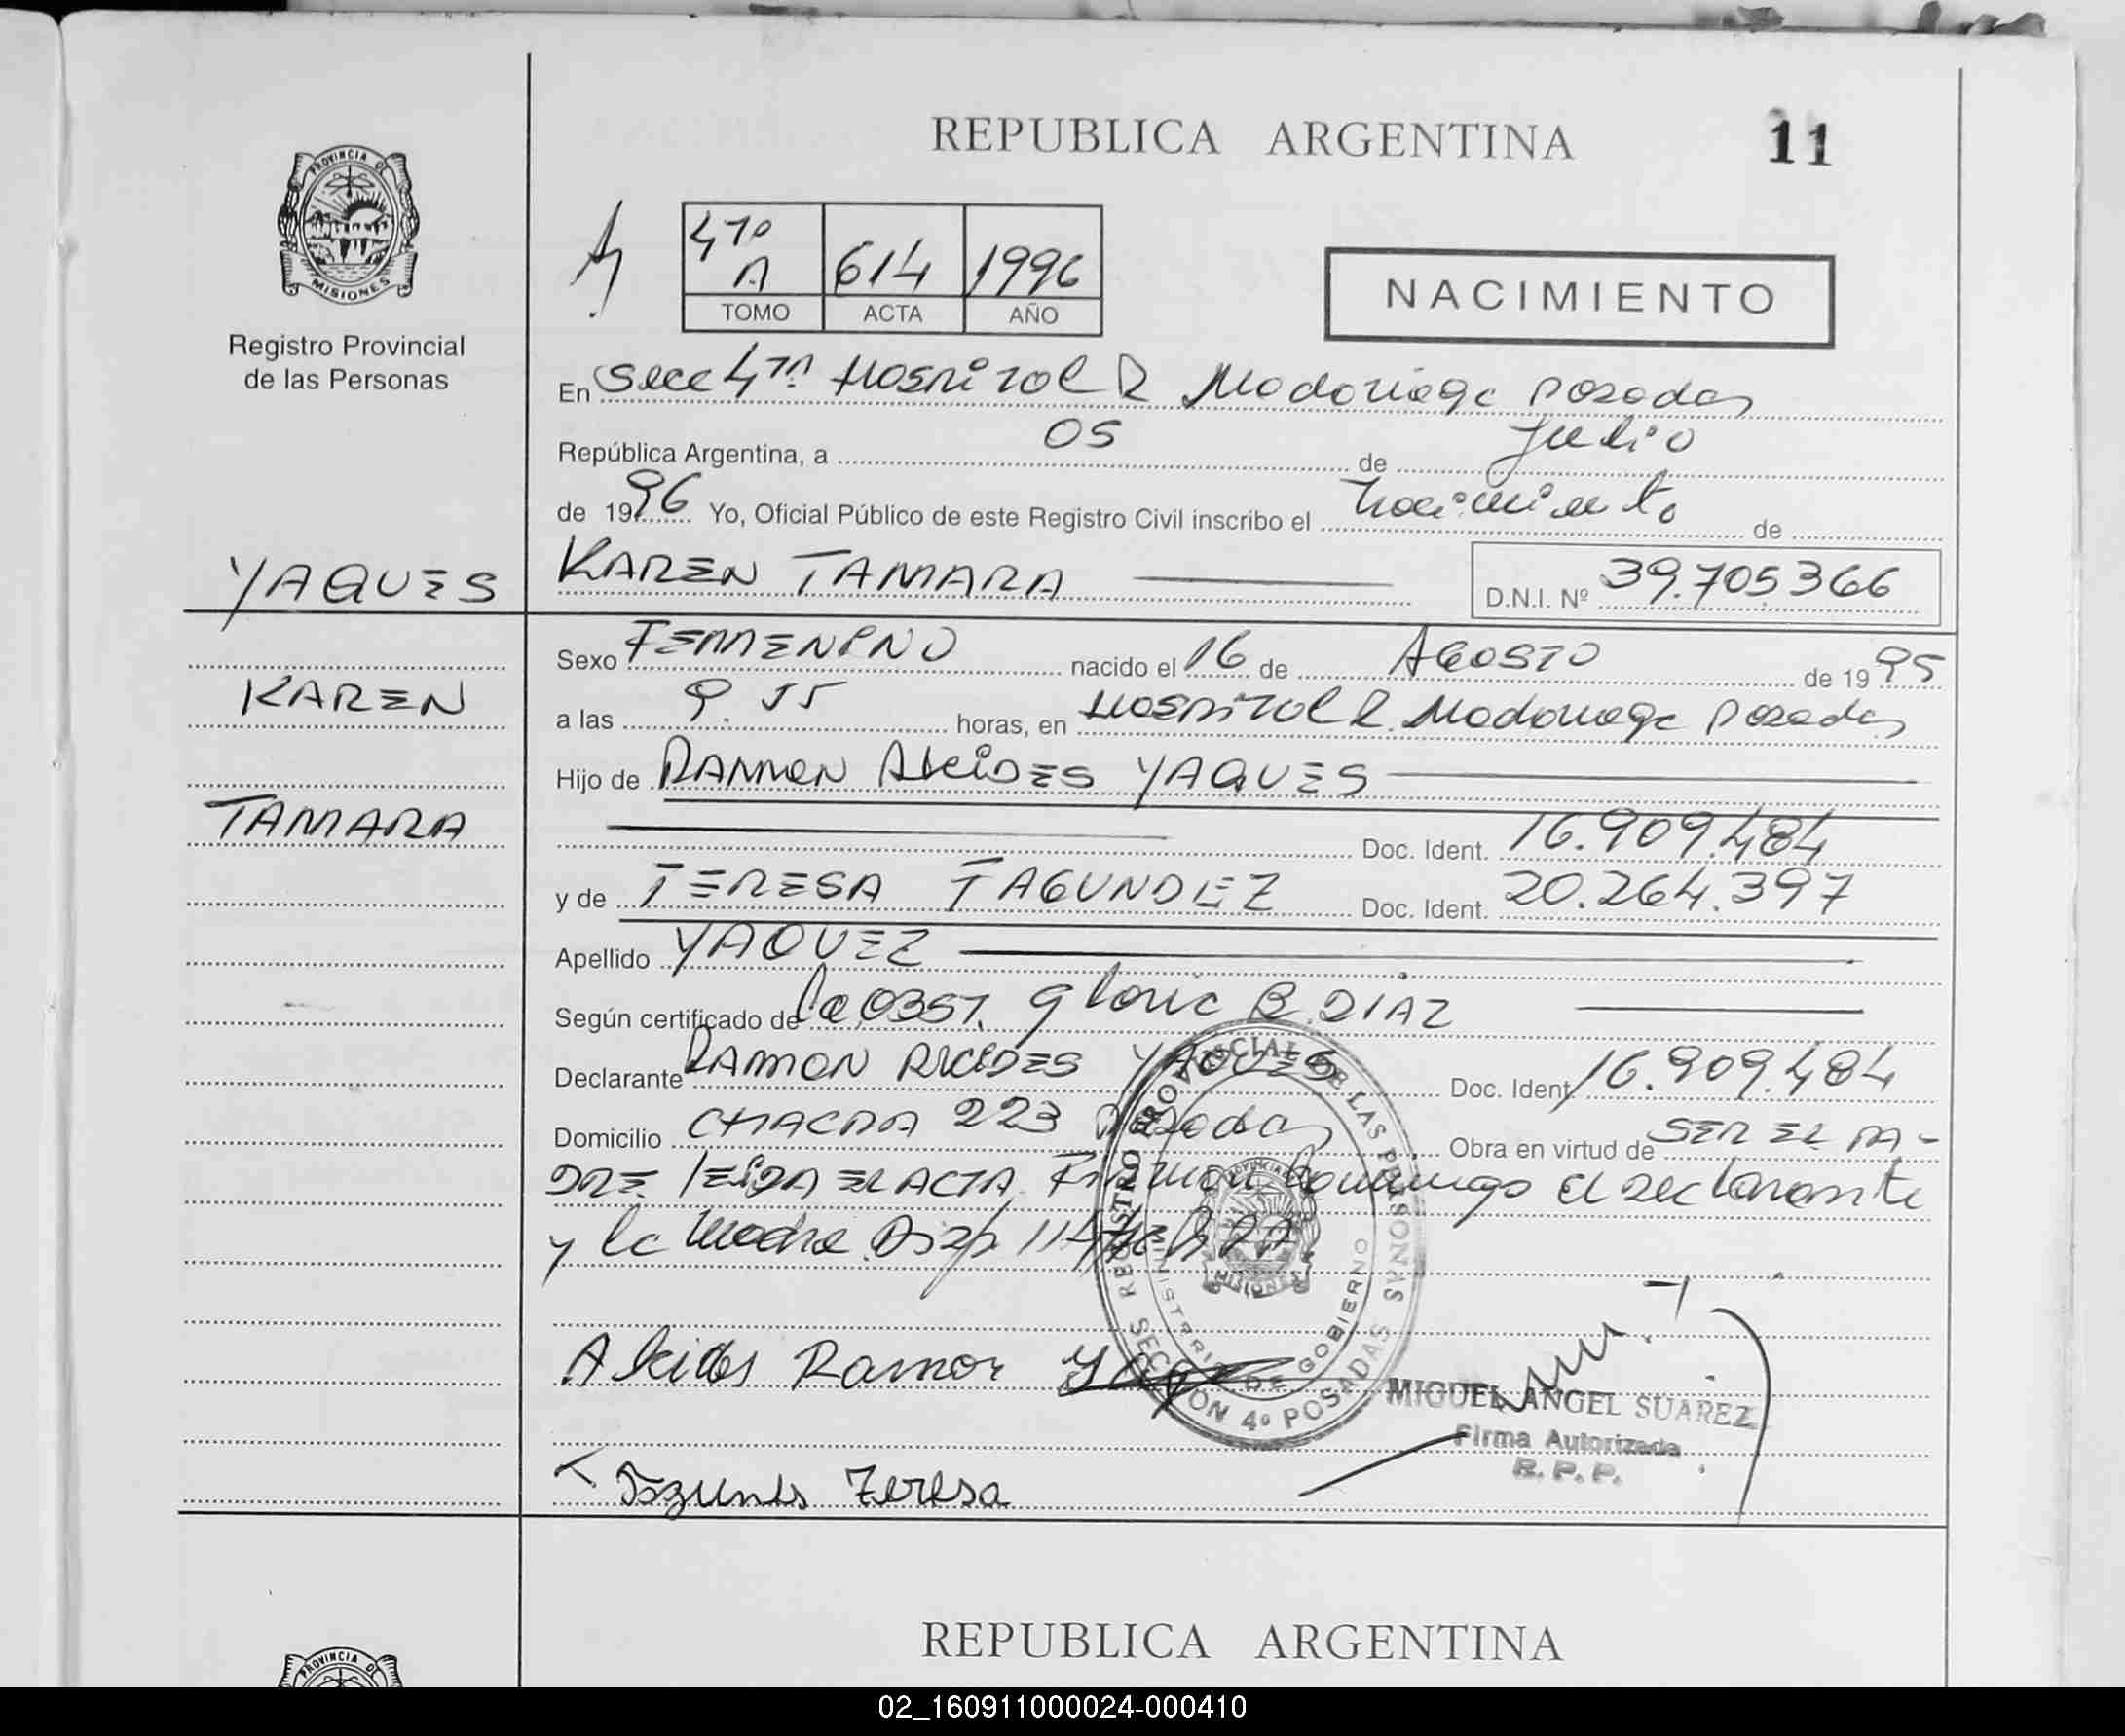 REPUBLICA ARGENTINA
11
PROVINCIA DE
MISIONES
Registro Provincial
de las Personas
4to A 614 1996
TOMO ACTA AÑO
NACIMIENTO
En Secc 4ta Hospital R Madariaga Posadas
República Argentina, a 05 de Julio
de 1996 Yo, Oficial Público de este Registro Civil inscribo el nacimiento de
YAQUES KAREN TAMARA D.N.I. Nº 39.705366
Sexo FEMENINO nacido el 16 de AGOSTO de 1995
KAREN
a las 9. horas, en Hospital R. Madariaga Posadas
Hijo de RAMON ALCIDES YAQUES
TAMARA
Doc. Ident. 16.909.484
y de TERESA FAGUNDEZ Doc. Ident. 20.264.397
Apellido YAQUEZ
Según certificado de la Obst. Gloria B. DIAZ
Declarante RAMON ALCIDES YAQUES Doc. Ident. 16.909.484
Domicilio CHACRA 223 Posadas Obra en virtud de SER EL PA-
DRE. LEIDA EL ACTA Firman conmigo el declarante
y la madre Disp
REGISTRO PROVINCIAL DE LAS PERSONAS
MINISTERIO DE GOBIERNO
PROVINCIA
MISIONES
SECCIÓN 4º POSADAS
Alcides Ramon
MIGUEL ANGEL SUAREZ
Firma Autorizada
R. P. P.
Teresa
REPUBLICA ARGENTINA
PROVINCIA DE
02_160911000024-000410